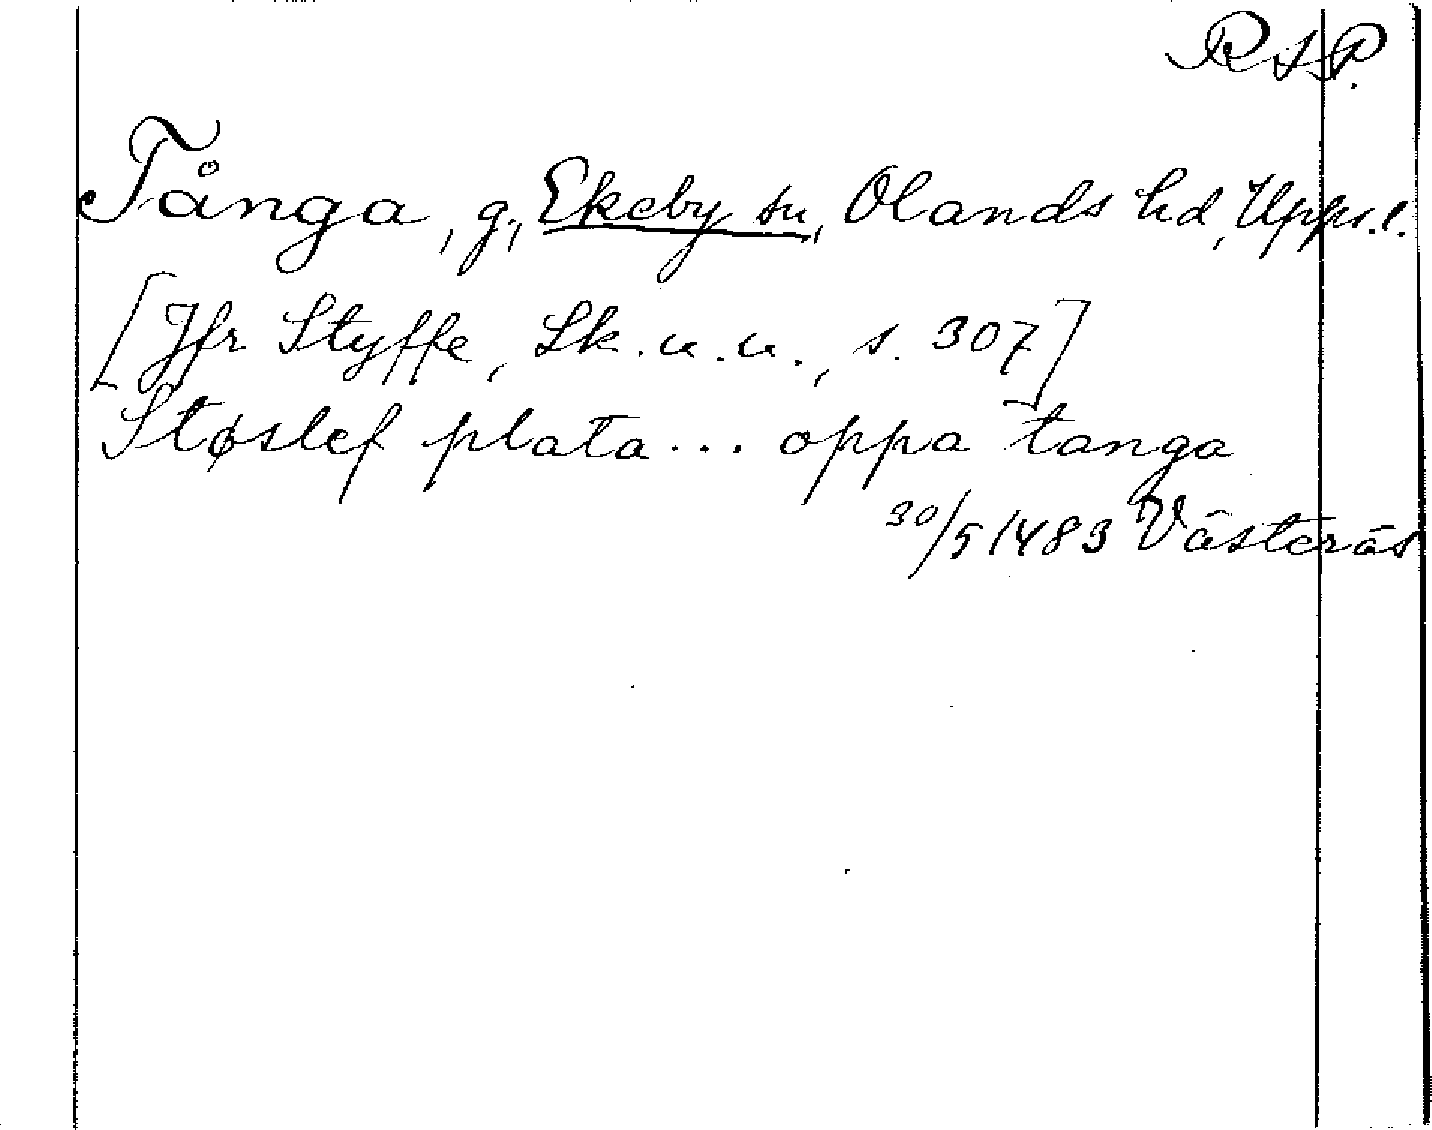 RSP.
Tånga, g, Ekeby sn, Olands hd, Upps. l.
[Jfr Styffe, Sk. u. u., s. 307]
Støslef plata... oppa tanga
30/5 1483 Västerås